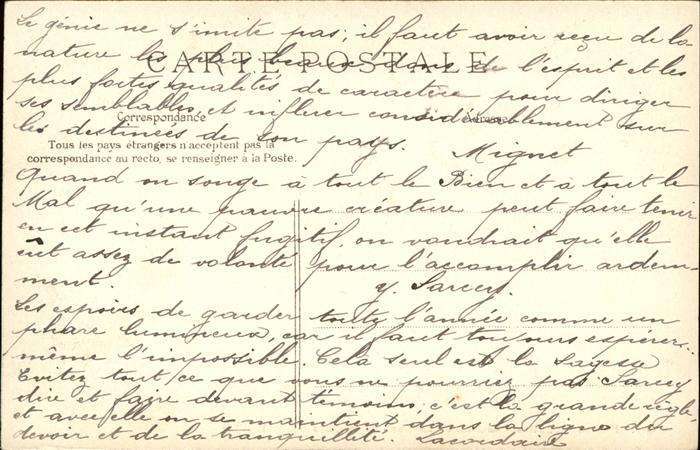 Le génie ne s'imite pas; il faut avoir reçu de la
nature les plus beaux dons de l'esprit et les
CARTE POSTALE
plus fortes qualités de caractère pour diriger
ses semblables, et influer considérablement sur
Correspondance
Adresse
les destinées de son pays. Mignet
Tous les pays étrangers n'acceptent pas la
correspondance au recto, se renseigner à la Poste.
Quand on songe à tout le Bien et à tout le
Mal qu'une pauvre créature peut faire tenir
en cet instant fugitif, on voudrait qu'elle
eût assez de volonté pour l'accomplir ardem
ment. Y. Sarcey.
Les espoirs de garder toute l'année comme un
phare lumineux, car il faut toujours espérer.
même l'impossible. Cela seul est la Sagesse
Sarcey
Evitez tout ce que vous ne pourriez pas
dire et faire devant témoins, c'est la grande règle
et avec elle on se maintient dans la ligne du
devoir et de la tranquillité. Lacordaire